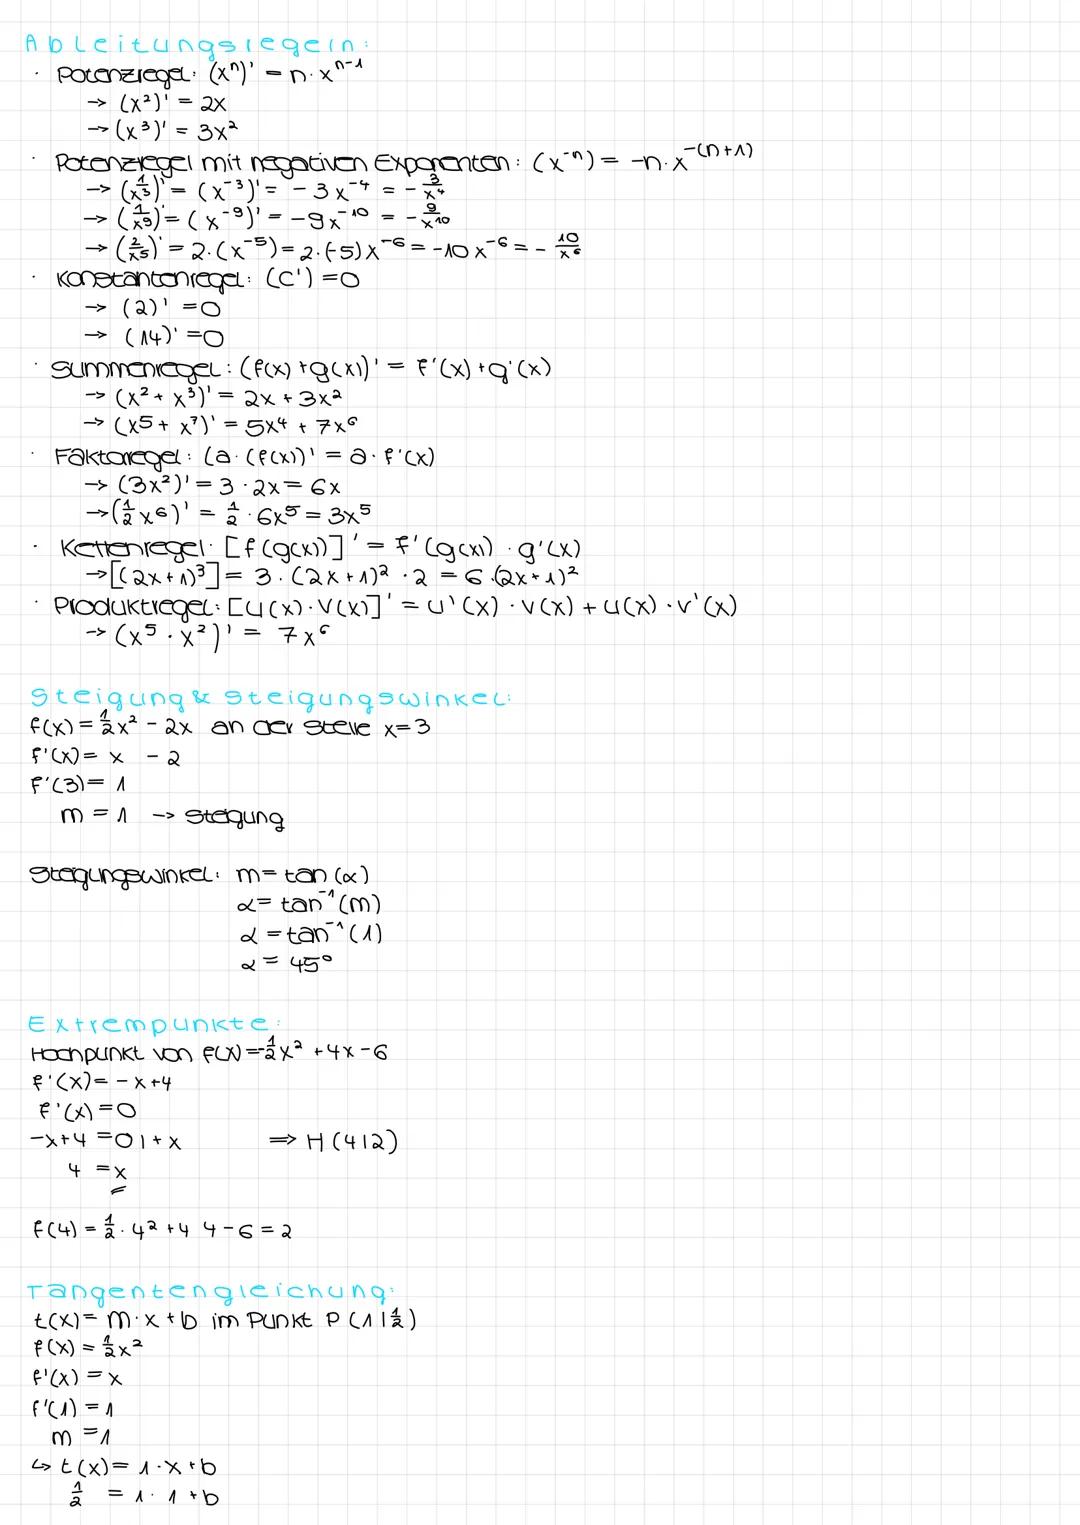 Ableitungsregeln:
· Potenzregel: (xⁿ)' = n·xⁿ⁻¹
→ (x²)' = 2x
→ (x³)' = 3x²
· Potenzregel mit negativen Exponenten: (x⁻ⁿ) = -n·x⁻⁽ⁿ⁺¹⁾
→ (1/x³)' = (x⁻³)' = -3x⁻⁴ = -3/x⁴
→ (1/x⁹)' = (x⁻⁹)' = -9x⁻¹⁰ = -9/x¹⁰
→ (2/x⁵)' = 2·(x⁻⁵) = 2·(-5)x⁻⁶ = -10x⁻⁶ = -10/x⁶
· Konstantenregel: (C') = 0
→ (2)' = 0
→ (14)' = 0
· Summenregel: (f(x) + g(x))' = f'(x) + g'(x)
→ (x² + x³)' = 2x + 3x²
→ (x⁵ + x⁷)' = 5x⁴ + 7x⁶
· Faktorregel: (a·(f(x))' = a·f'(x)
→ (3x²)' = 3·2x = 6x
→ (1/2 x⁶)' = 1/2·6x⁵ = 3x⁵
· Kettenregel: [f(g(x))]' = f'(g(x))·g'(x)
→ [(2x+1)³] = 3·(2x+1)²·2 = 6·(2x+1)²
· Produktregel: [u(x)·v(x)]' = u'(x)·v(x) + u(x)·v'(x)
→ (x⁵·x²)' = 7x⁶
Steigung & Steigungswinkel:
f(x) = 1/2x² - 2x an der Stelle x=3
f'(x) = x - 2
f'(3) = 1
m = 1 → Steigung
Steigungswinkel: m = tan(α)
α = tan⁻¹(m)
α = tan⁻¹(1)
α = 45°
Extrempunkte:
Hochpunkt von f(x) = -1/2x² + 4x - 6
f'(x) = -x+4
f'(x) = 0
-x+4 = 0 | +x ⇒ H(4|2)
4 = x
f(4) = 1/2·4² + 4 4 - 6 = 2
Tangentengleichung:
t(x) = m·x + b im Punkt P(1|1/2)
f(x) = 1/2x²
f'(x) = x
f'(1) = 1
m = 1
↳ t(x) = 1·x + b
1/2 = 1·1 + b